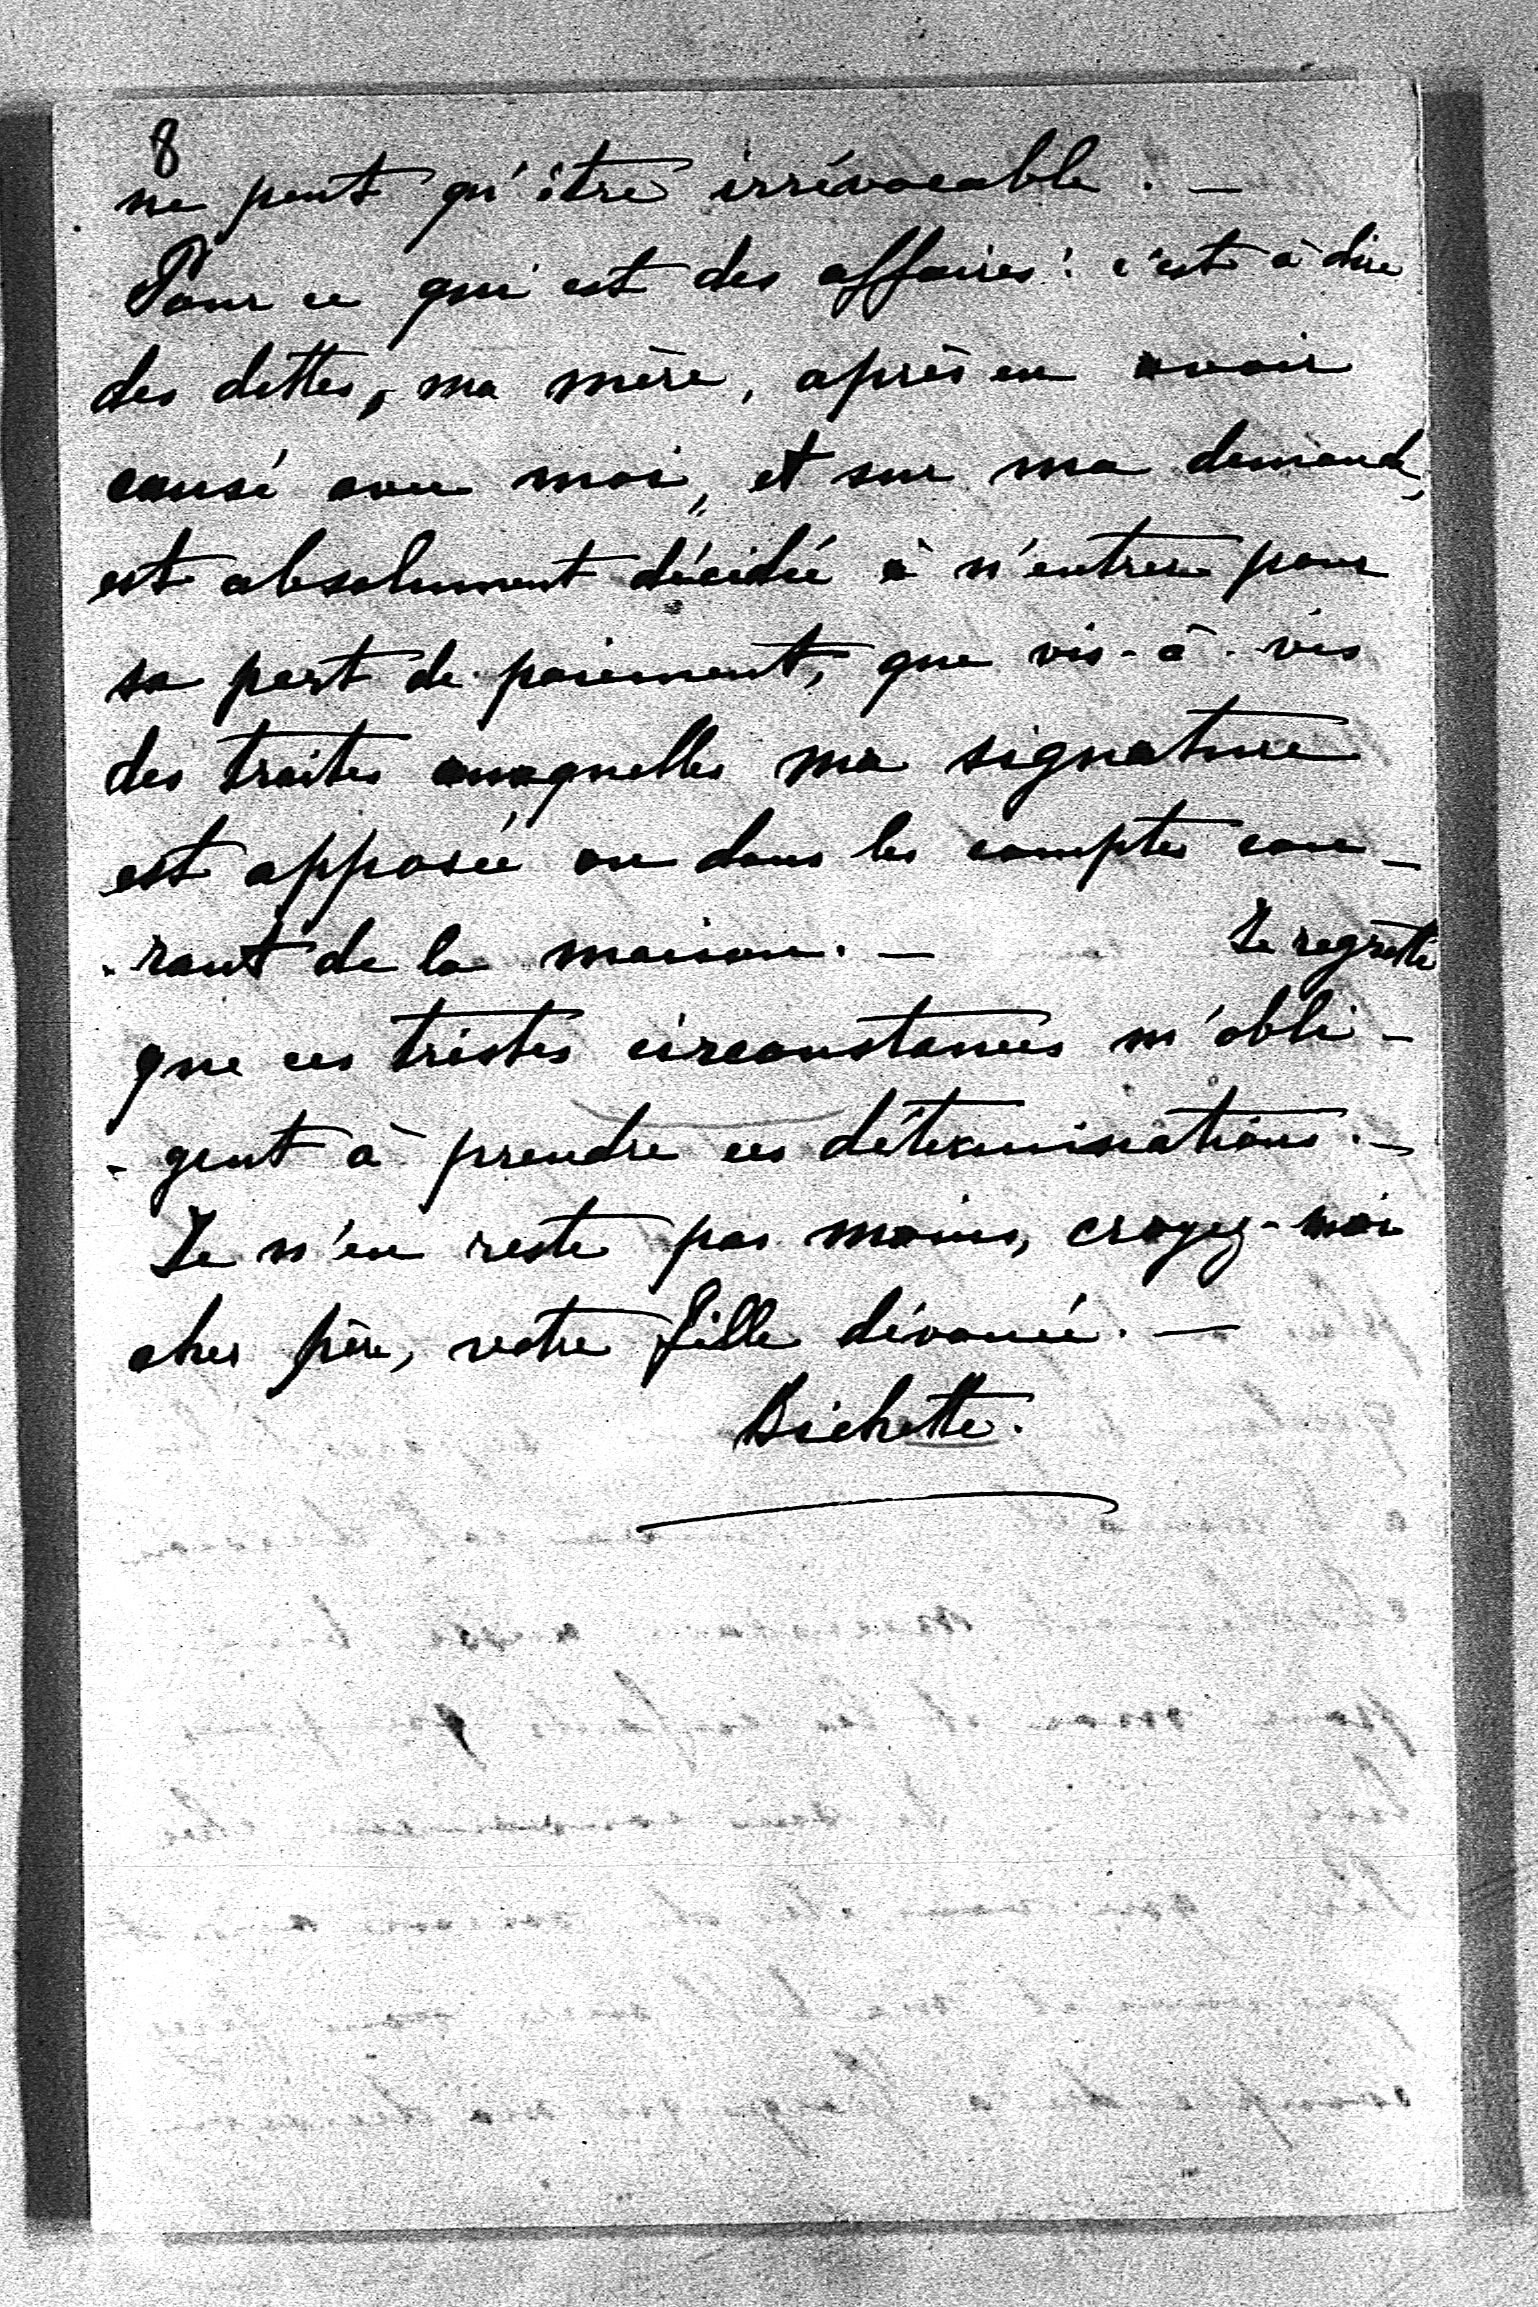 8
ne peut qu'être irrévocable. —
Pour ce qui est des affaires : c'est à dire
des dettes, ma mère, après en avoir
causé avec moi, et sur ma demande,
est absolument décidée à n'entrer pour
sa part de paiement, que vis-à-vis
des traites auxquelles ma signature
est apposée ou dans les comptes cou-
-rant de la maison. — Je regrette
que ces tristes circonstances m'obli-
-gent à prendre ces déterminations. —
Je n'en reste pas moins, croyez-moi
cher père, votre fille dévouée. —
Bichette.